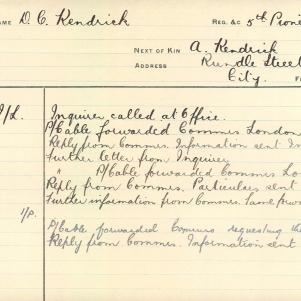 NAME D. C. Kendrick REG. &C 5th Pione
NEXT OF KIN A. Kendrick
ADDRESS Rundle Street
City.
I/L. Inquirer called at Office.
P/Cable forwarded Commrs London
Reply from Commrs. Information sent In
Further letter from Inquirer
" P/Cable forwarded Commrs Lo
Reply from Commrs. Particulars sent
Further information from Commrs. Same forwa
I/P. P/Cable forwarded Commrs requesting the
Reply from Commrs. Information sent